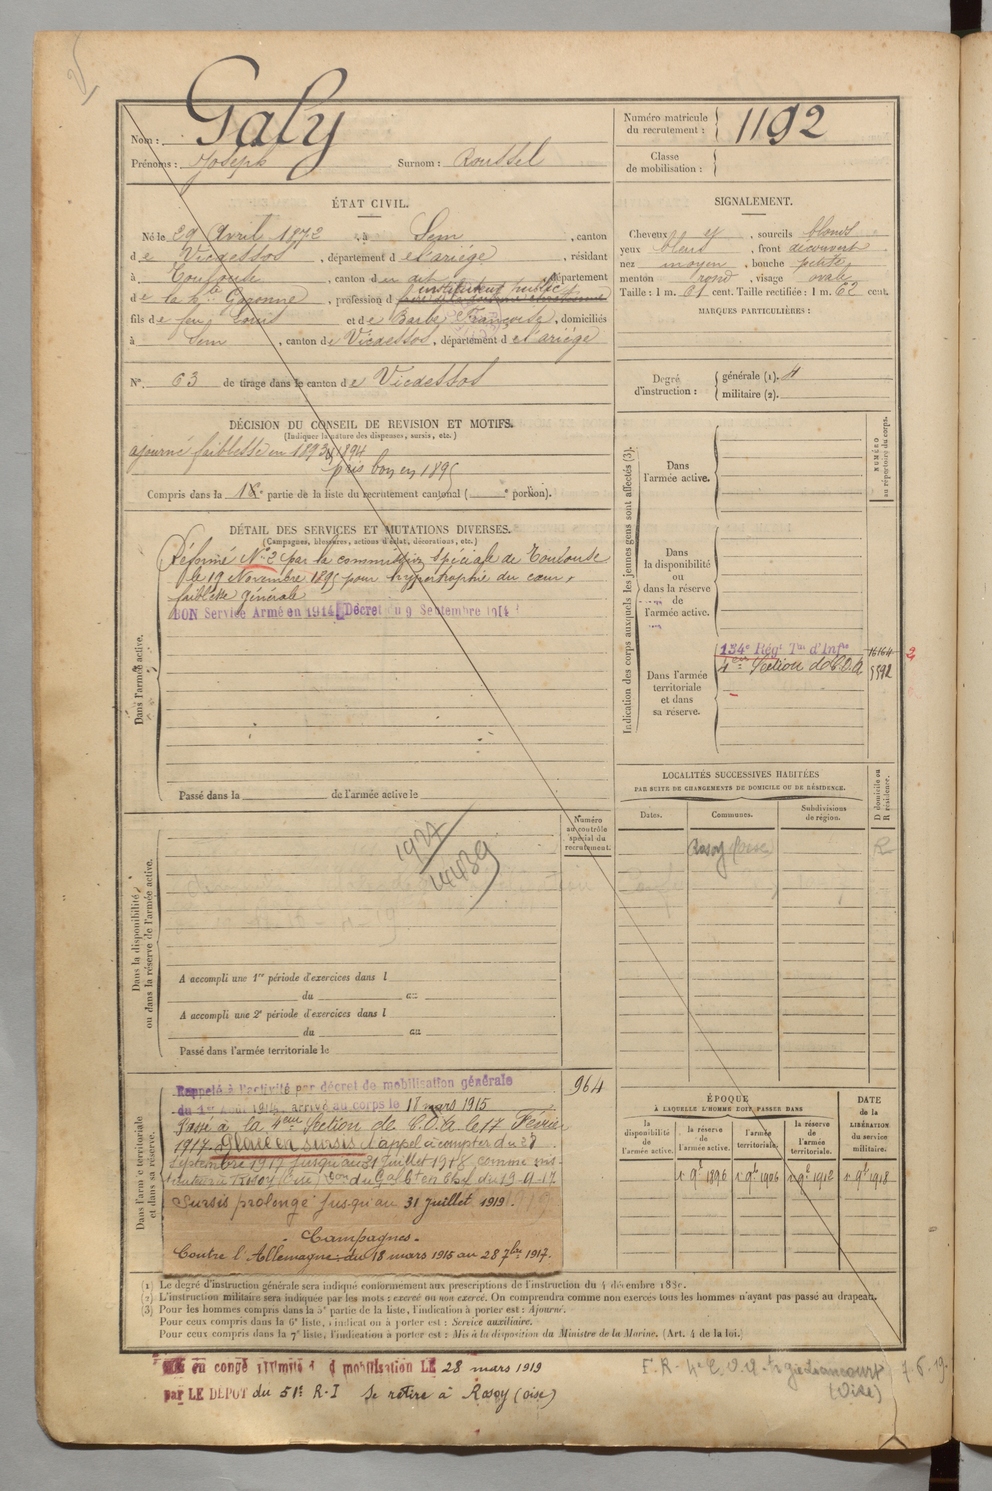 Galy
Nom :
Prénoms : Joseph Surnom : Roussel
Numéro matricule
du recrutement : 1192
Classe
de mobilisation :
ÉTAT CIVIL.
Né le 29 Avril 1872, à Sem, canton
de Vicdessos, département de l'ariége, résidant
à Toulouse, canton du dit, département
instituteur public
de la hte Garonne, profession d
fils de feu Louis et de Barbe Françoise, domiciliés
à Sem, canton de Vicdessos, département de l'ariége
N° 63 de tirage dans le canton de Vicdessos
SIGNALEMENT.
Cheveux y, sourcils blonds
yeux bleus, front découvert
nez moyen, bouche petite
menton rond, visage ovale
Taille : 1 m. 61 cent. Taille rectifiée : 1 m. 62 cent.
MARQUES PARTICULIÈRES :
Degré
d'instruction :
générale (1). 4
militaire (2).
DÉCISION DU CONSEIL DE REVISION ET MOTIFS.
(Indiquer la nature des dispenses, sursis, etc.)
ajourné faiblesse en 1893 & 1894
pris bon en 1895
Compris dans la 1re partie de la liste du recrutement cantonal ( e portion).
DÉTAIL DES SERVICES ET MUTATIONS DIVERSES.
(Campagnes, blessures, actions d'éclat, décorations, etc.)
Réformé N° 2 par la commission spéciale de Toulouse
le 19 Novembre 1895 pour hypertrophie du cœur,
faiblesse générale
BON Service Armé en 1914 Décret du 9 Septembre 1914
Dans l'armée active.
Passé dans la de l'armée active le
Indication des corps auxquels les jeunes gens sont affectés (3).
NUMÉRO
au répertoire du corps.
Dans
l'armée active.
Dans
la disponibilité
ou
dans la réserve
de
l'armée active.
Dans l'armée
territoriale
et dans
sa réserve.
134e Régt Tal d'Infie 16164
4eme Section de C.O.A 5592
LOCALITÉS SUCCESSIVES HABITÉES
PAR SUITE DE CHANGEMENTS DE DOMICILE OU DE RÉSIDENCE.
Dates.
Communes.
Subdivisions
de région.
D domicile ou
R résidence.
Rosoy Oise R
Numéro
au contrôle
spécial du
recrutement.
1927
14439
Dans la disponibilité
ou dans la réserve de l'armée active.
A accompli une 1re période d'exercices dans l
du au
A accompli une 2e période d'exercices dans l
du au
Passé dans l'armée territoriale le
Dans l'armée territoriale
et dans sa réserve.
964
Rappelé à l'activité par décret de mobilisation générale
du 1er Août 1914, arrivé au corps le 18 mars 1915
Passé à la 4eme Section de C.O.A. le 17 Février
1917. Placé en sursis d'appel à compter du 28
Septembre 1917 jusqu'au 31 Juillet 1918 comme ins-
tituteur à Rosoy (Oise)
Sursis prolongé jusqu'au 31 juillet 1919.
Campagnes.
Contre l'Allemagne du 18 mars 1915 au 28 7bre 1917.
ÉPOQUE
À LAQUELLE L'HOMME DOIT PASSER DANS
la
disponibilité
de
l'armée active.
la réserve
de
l'armée active.
l'armée
territoriale.
la réserve
de
l'armée
territoriale.
DATE
de la
LIBÉRATION
du service
militaire.
1 9b 1896 1 9b 1906 1 9b 1912 1 9b 1918
(1) Le degré d'instruction générale sera indiqué conformément aux prescriptions de l'instruction du 4 décembre 1889.
(2) L'instruction militaire sera indiquée par les mots : exercé ou non exercé. On comprendra comme non exercés tous les hommes n'ayant pas passé au drapeau.
(3) Pour les hommes compris dans la 5e partie de la liste, l'indication à porter est : Ajourné.
Pour ceux compris dans la 6e liste, l'indication à porter est : Service auxiliaire.
Pour ceux compris dans la 7e liste, l'indication à porter est : Mis à la disposition du Ministre de la Marine. (Art. 4 de la loi.)
en congé illimité de démobilisation LE 28 mars 1919
par LE DEPOT du 51e R-I Se retire à Rosoy (oise)
F.R. 4e C.O.A. Liancourt 7-6-19.
(Oise)